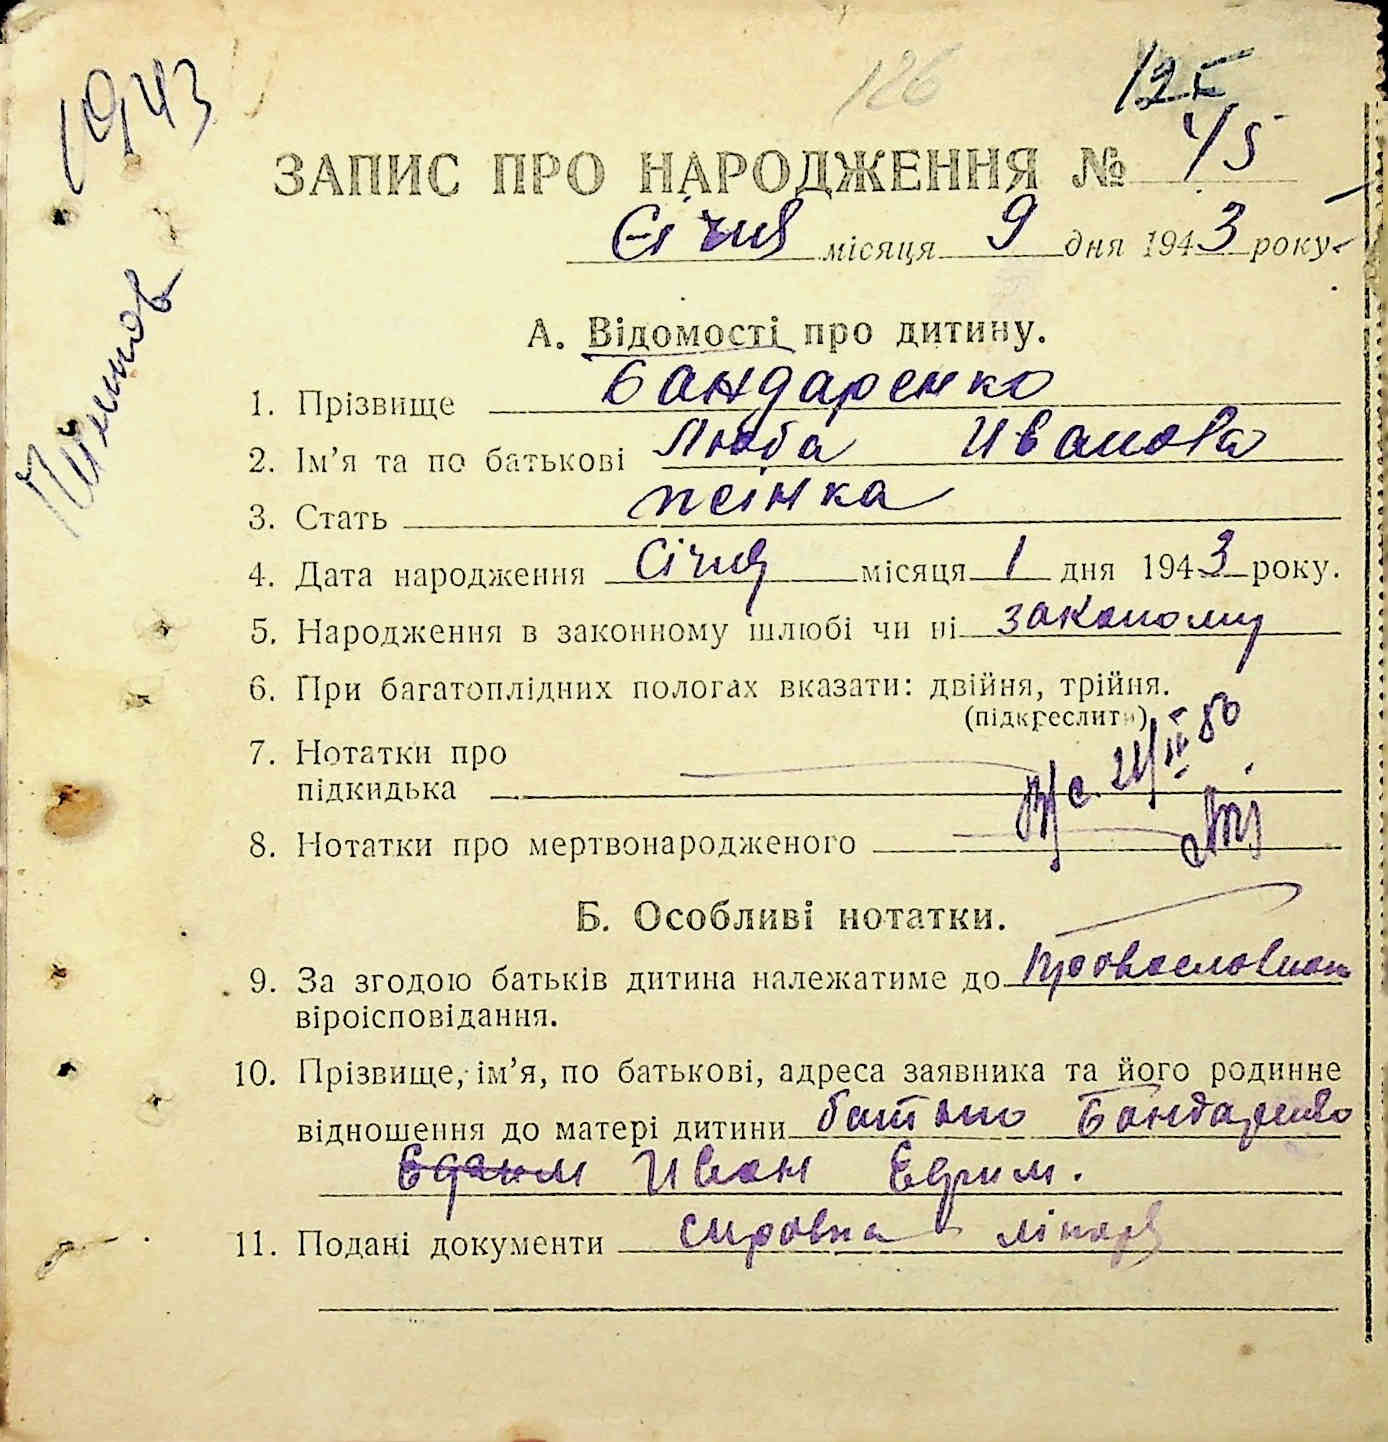 1943
126
125
ЗАПИС ПРО НАРОДЖЕННЯ № 45
Січня місяця 9 дня 1943 року
А. Відомості про дитину.
1. Прізвище Бандаренко
2. Ім’я та по батькові Люба Иванова
3. Стать жінка
4. Дата народження Січня місяця 1 дня 1943 року.
5. Народження в законному шлюбі чи ні законому
6. При багатоплідних пологах вказати: двійня, трійня.
(підкреслити)
7. Нотатки про
підкидька
8. Нотатки про мертвонародженого
Б. Особливі нотатки.
9. За згодою батьків дитина належатиме до
віроісповідання.
10. Прізвище, ім’я, по батькові, адреса заявника та його родинне
відношення до матері дитини батько Бандаренко
Иван Ефим.
11. Подані документи справка лікаря